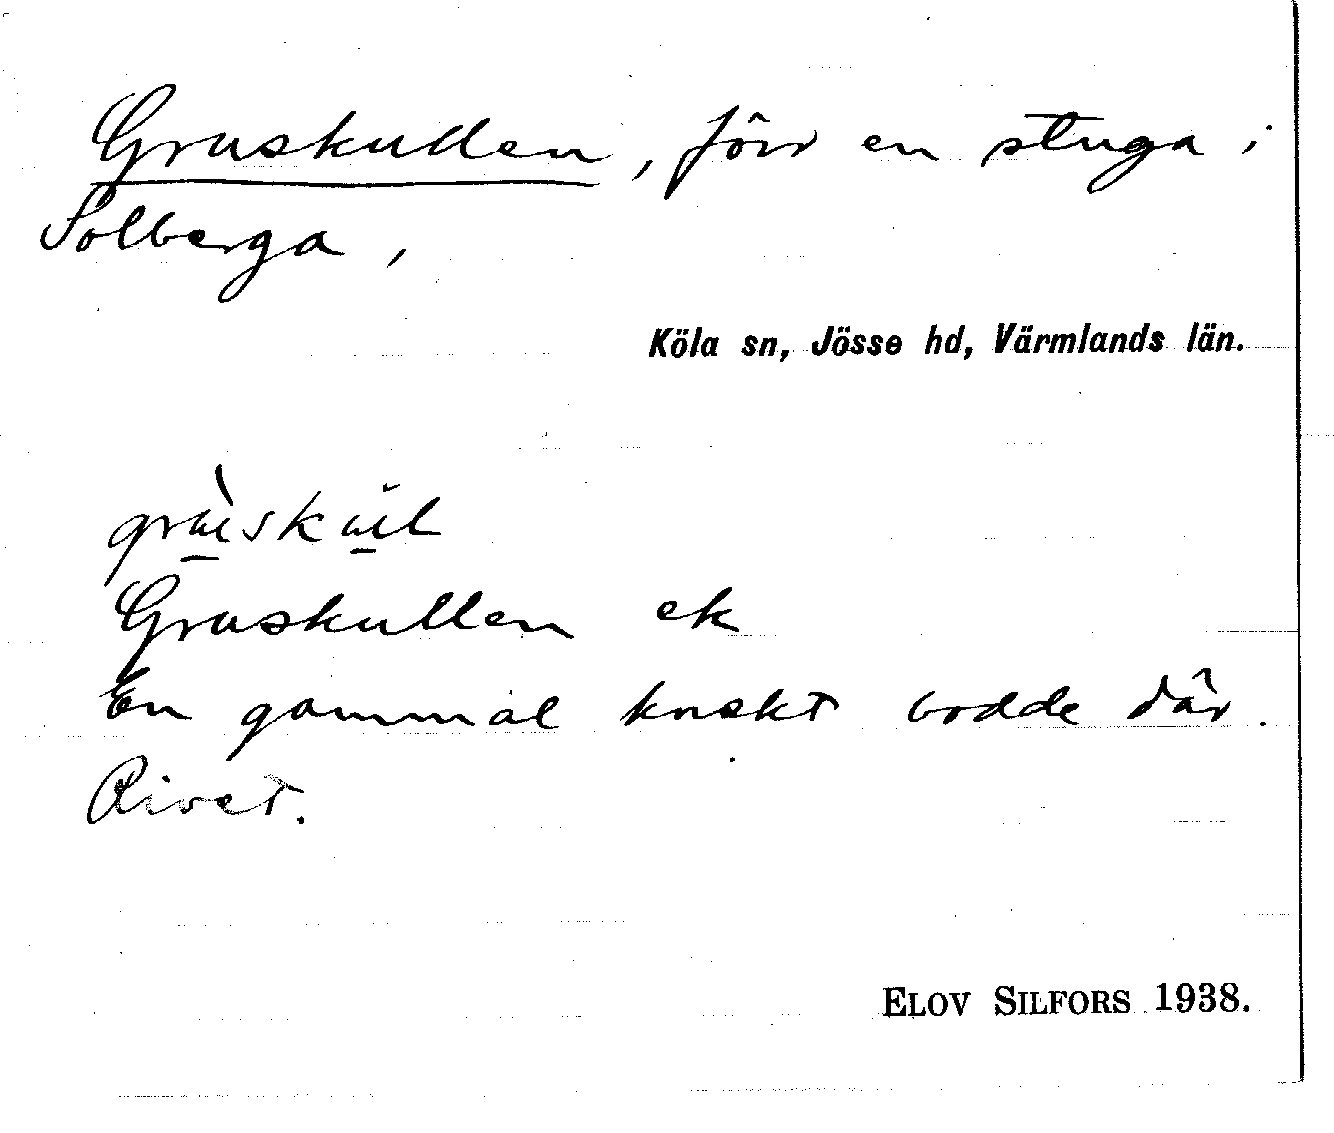 Gruskullen, förr en stuga i
Solberga,
Köla sn, Jösse hd, Värmlands län.
Gruskullen ek
En gammal knekt bodde där.
Rivet.
ELOV SILFORS 1938.